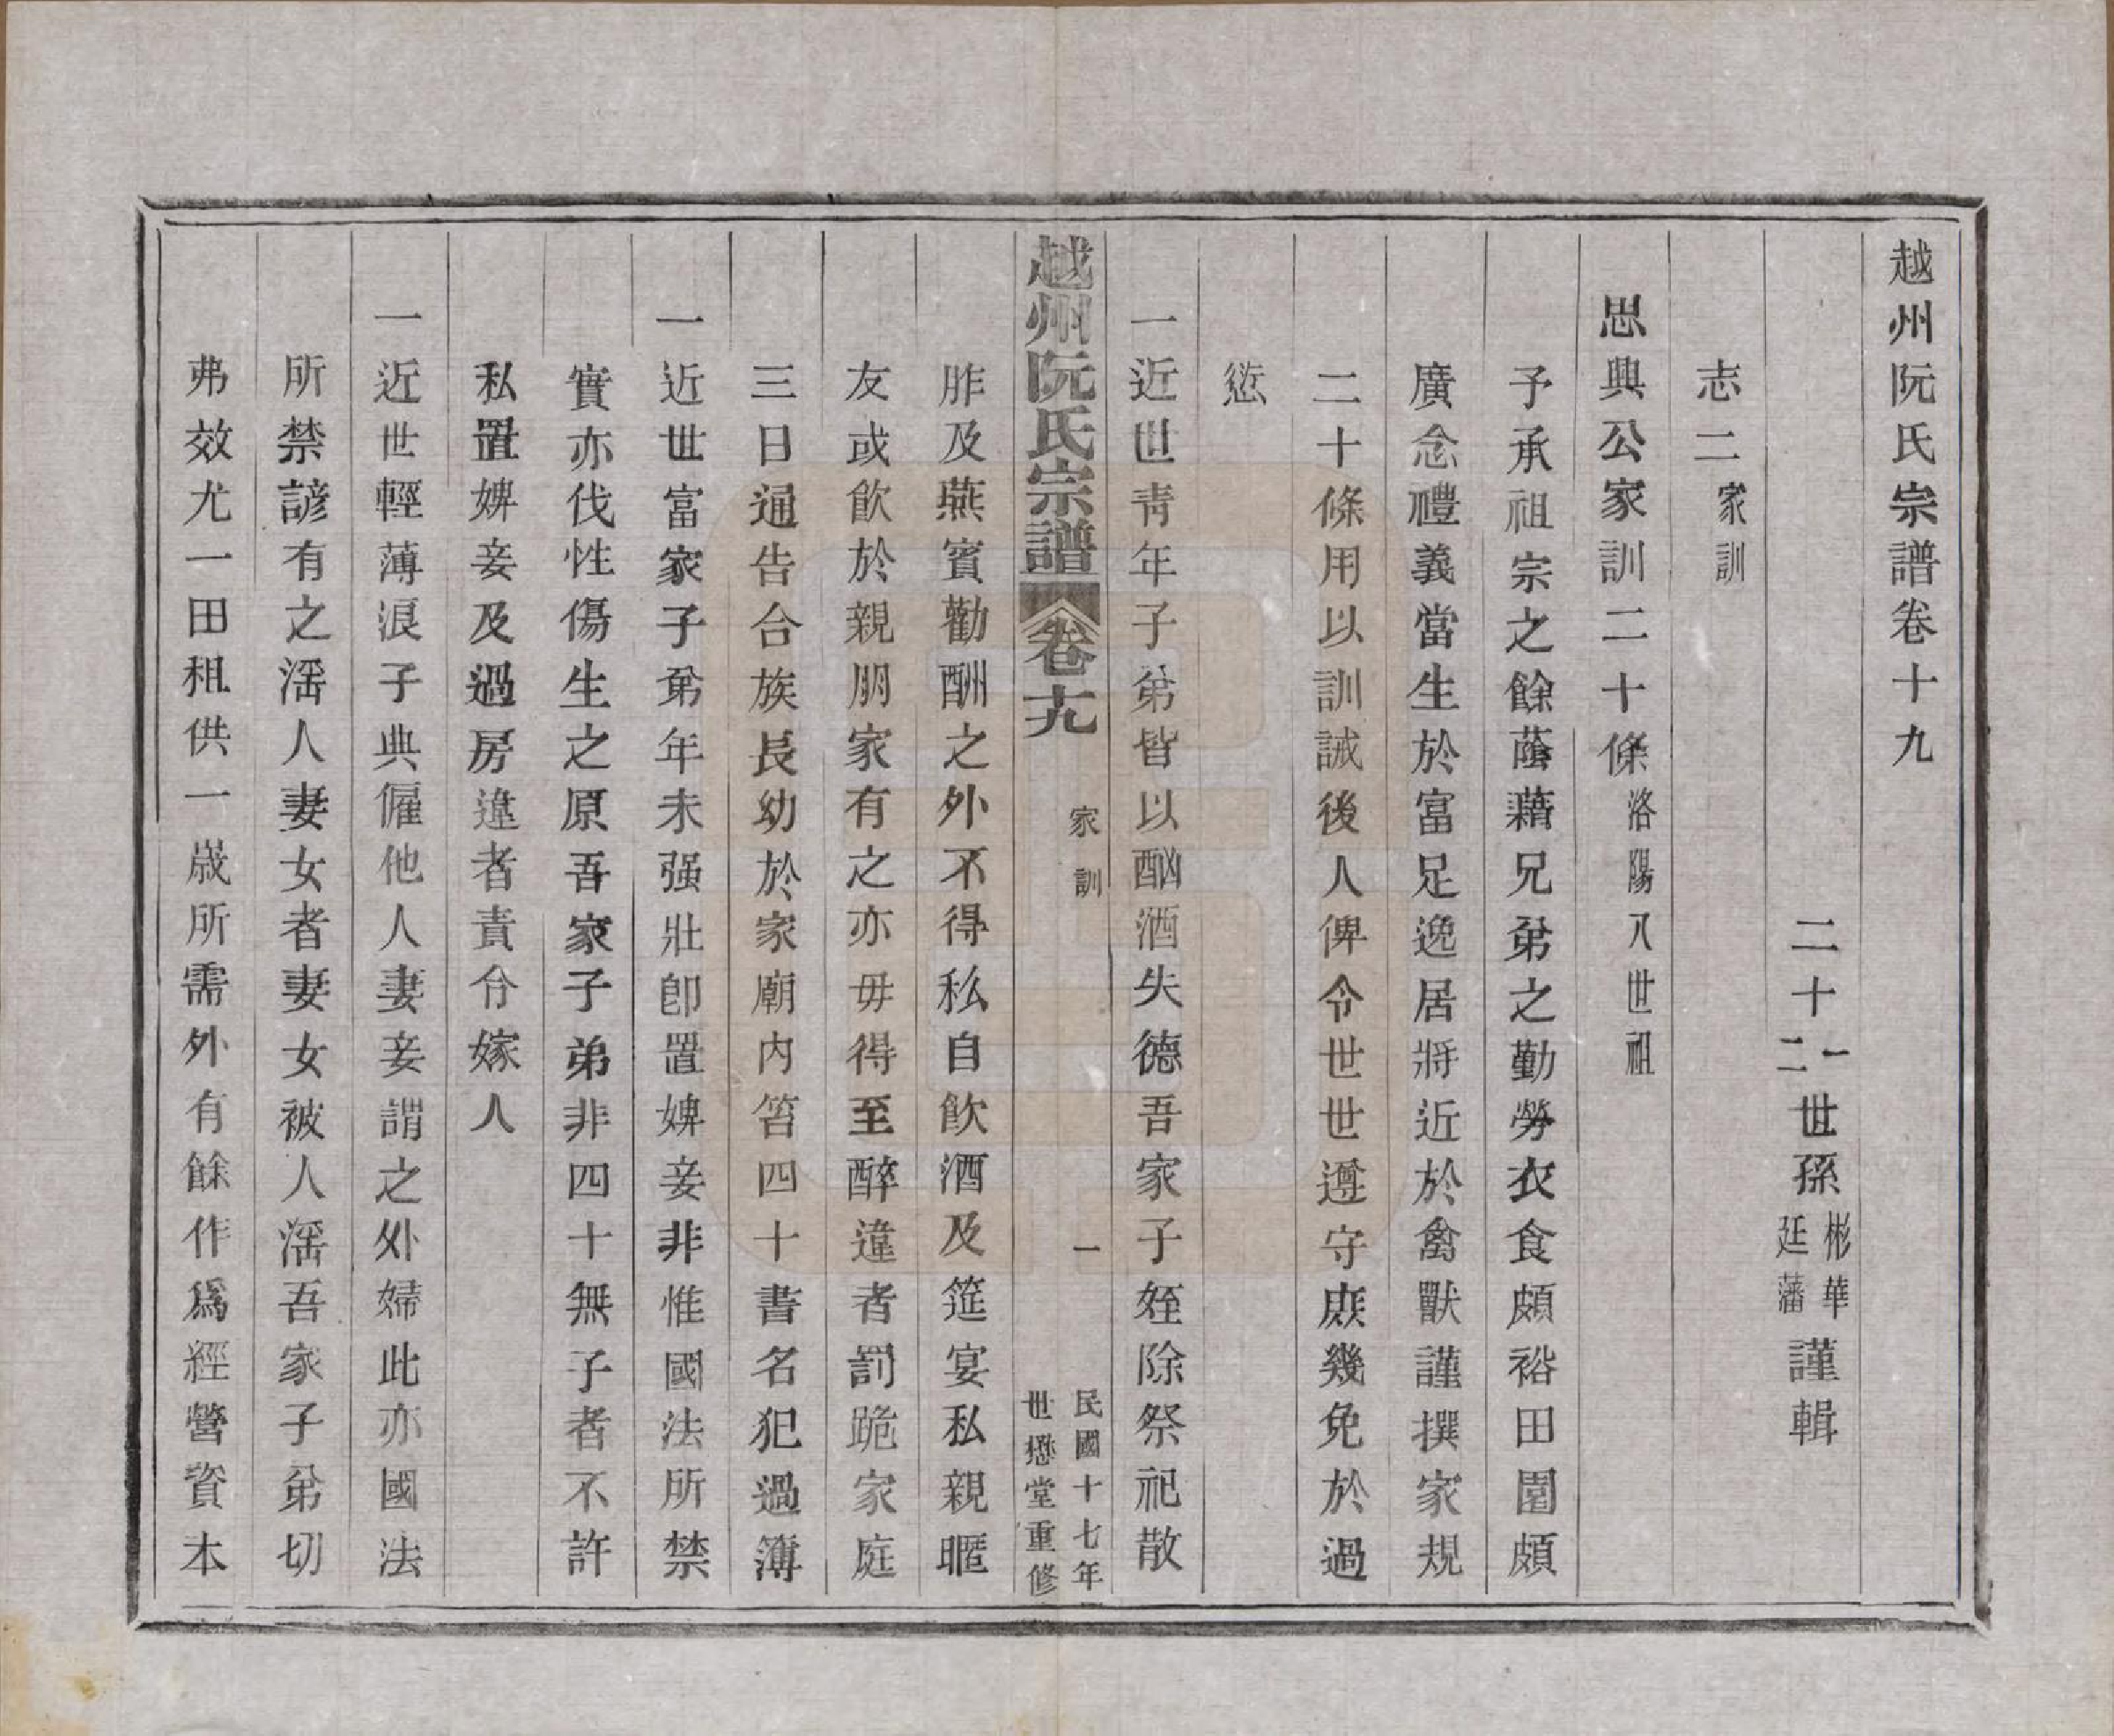 越州阮氏宗譜卷十九
二十一二世孫彬華廷藩謹輯
志二家訓
思興公家訓二十條洛陽八世祖
予承祖宗之餘蔭藉兄弟之勤勞衣食頗裕田園頗
廣念禮義當生於富足逸居將近於禽獸謹撰家規
二十條用以訓誡後人俾令世世遵守庻幾免於過
愆
一近世靑年子弟皆以酗酒失德吾家子姪除祭祀散
越州阮氏宗譜卷十九 家訓 一 民國十七年
世懋堂重修
胙及燕賓勸酬之外不得私自飮酒及筵宴私親暱
友或飮於親朋家有之亦毋得至醉違者罰跪家庭
三日通告合族長幼於家廟內笞四十書名犯過簿
一近世富家子弟年未强壯卽置婢妾非惟國法所禁
實亦伐性傷生之原吾家子弟非四十無子者不許
私置婢妾及過房違者責令嫁人
一近世輕薄浪子典僱他人妻妾謂之外婦此亦國法
所禁諺有之滛人妻女者妻女被人滛吾家子弟切
弗效尤一田租供一歲所需外有餘作爲經營資本